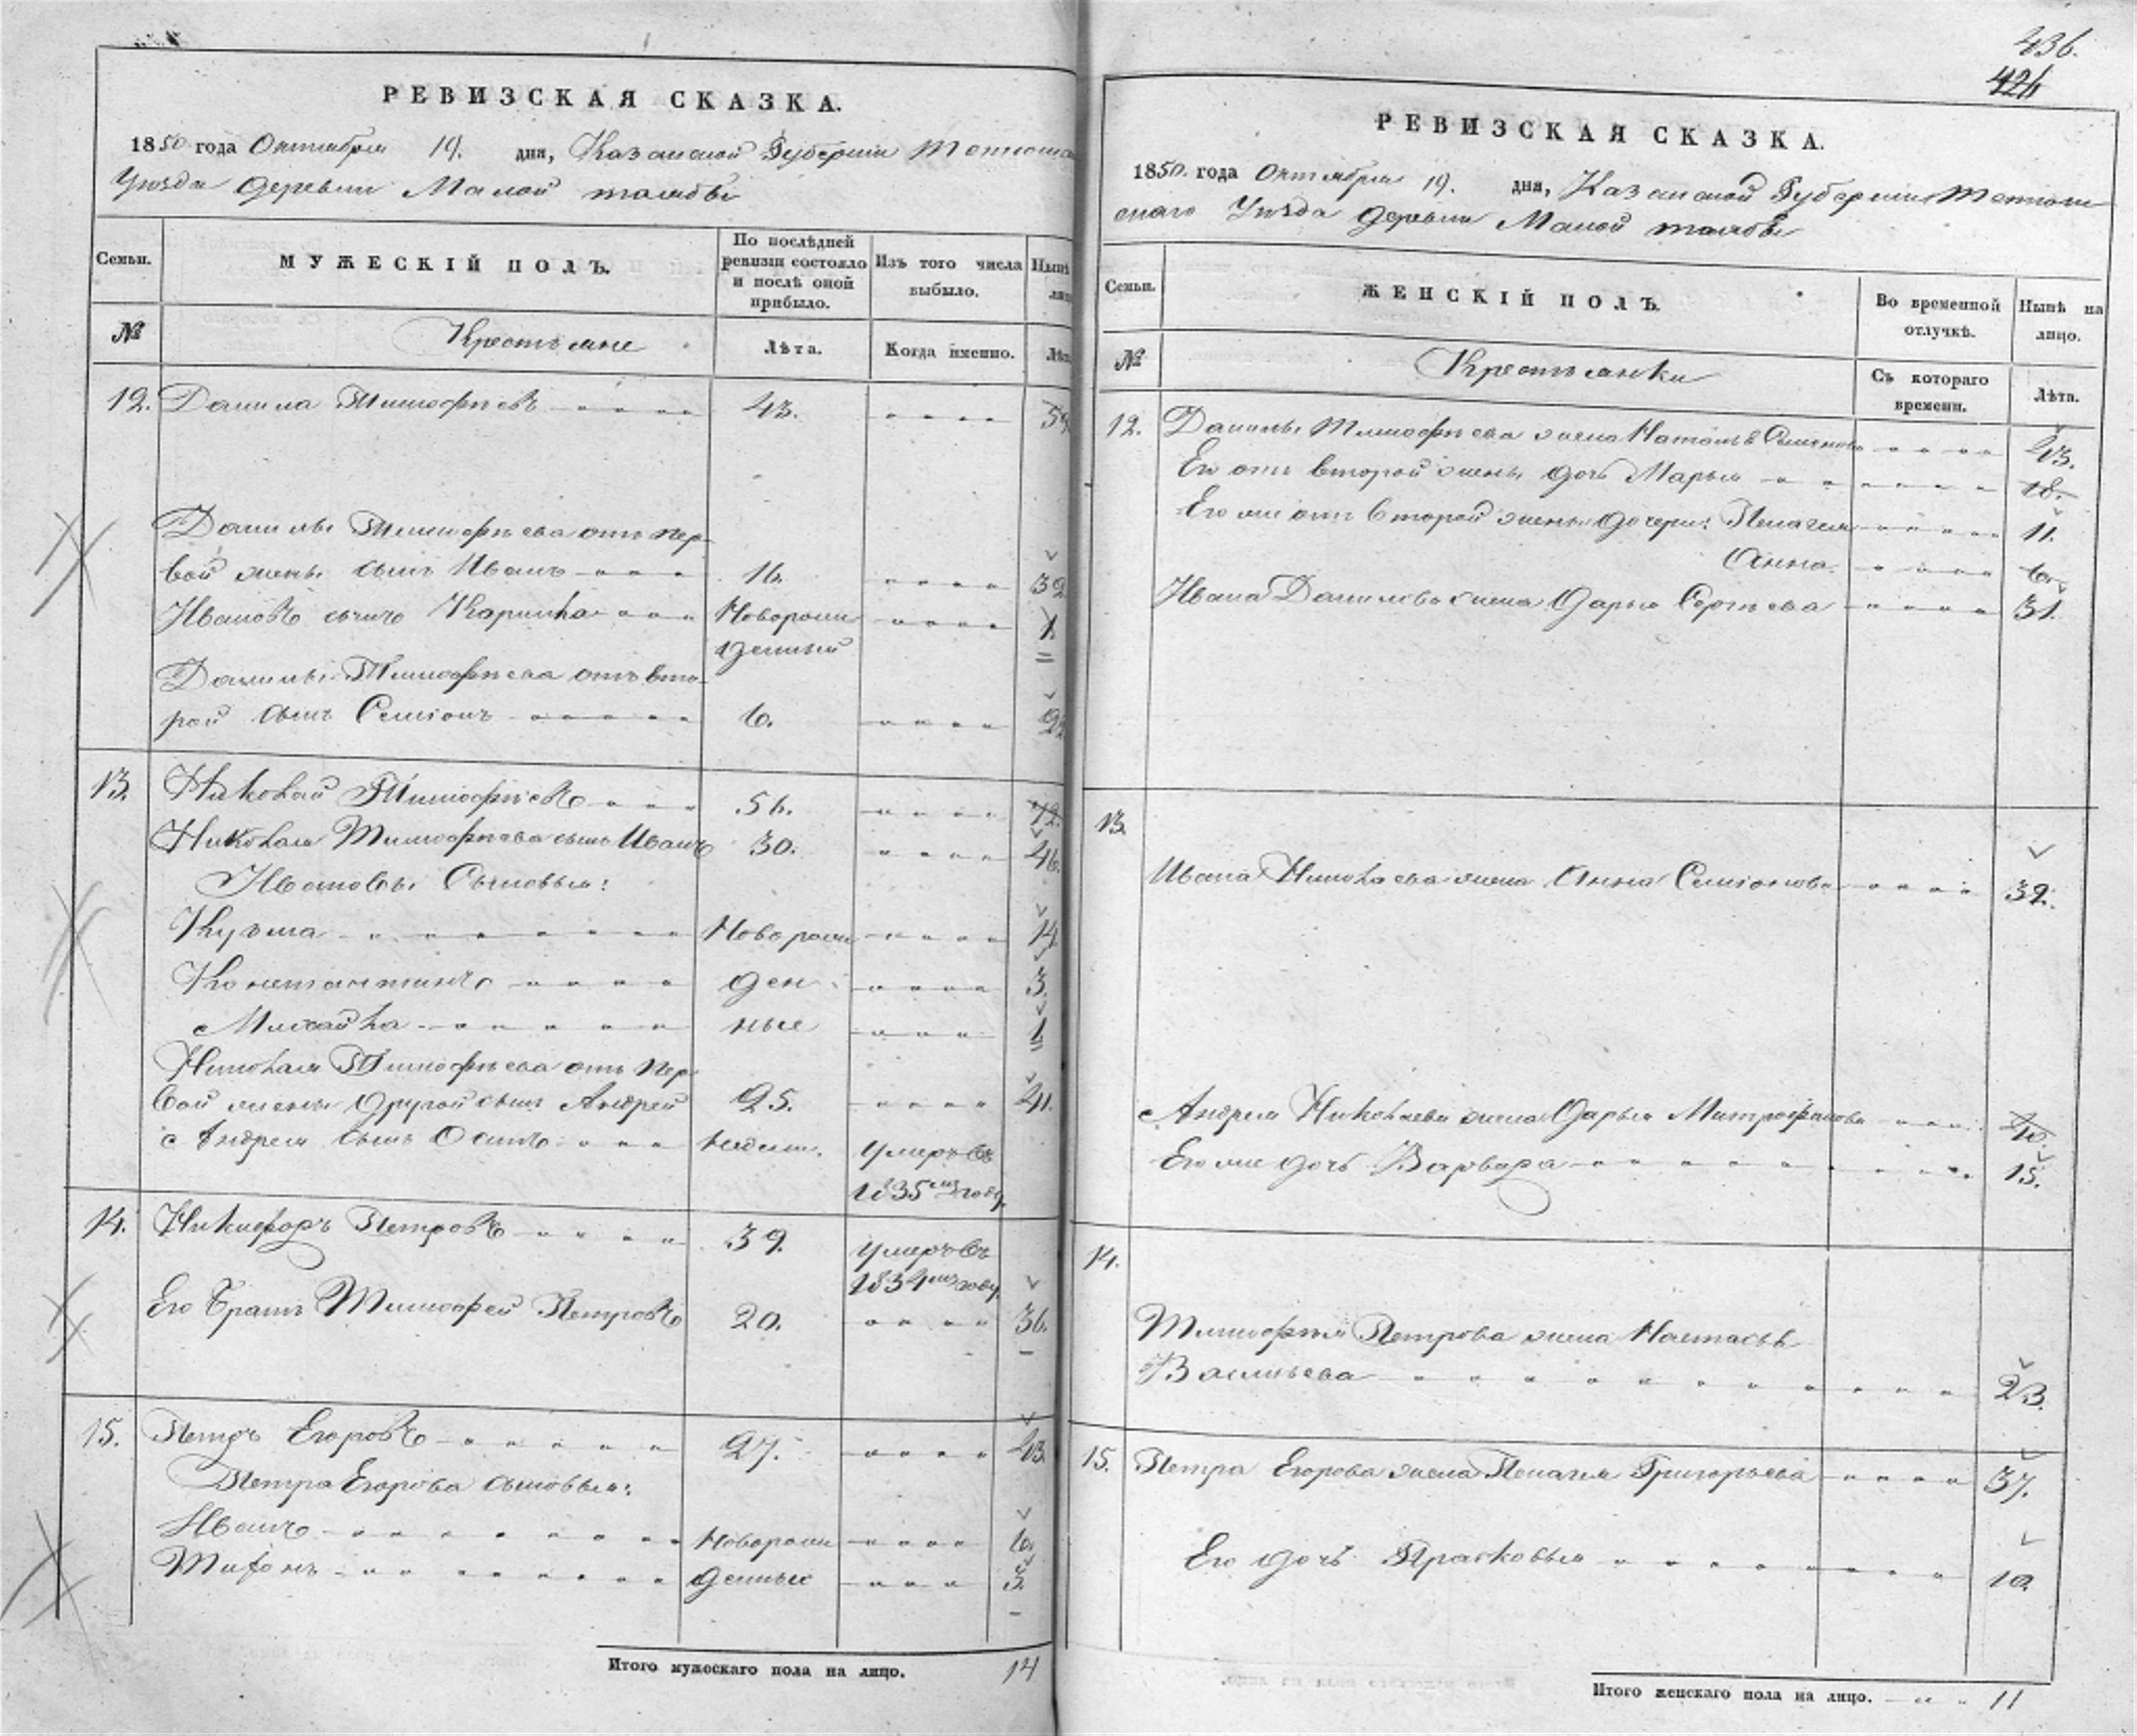 436.
426
РЕВИЗСКАЯ СКАЗКА.
1850 года Октября 19. дня, Казанской Губернии
Уѣзда деревни Малой
Семьи. МУЖЕСКІЙ ПОЛЪ. По послѣдней ревизіи состояло и послѣ оной прибыло. Изъ того числа выбыло. Нынѣ
№ Крестьяне Лѣта. Когда именно. Лѣта
12. Данила Тимофѣевъ 43. 59
Данилы Тимофѣева отъ пер-
вой жены сынъ Иванъ 16. 32
Ивановъ сынъ Новорож- 1
денный
Данилы Тимофѣева отъ вто-
рой сынъ Семіонъ 6. 22
13. Николай Тимофѣевъ 56. 72.
Николая Тимофѣева сынъ Иванъ 30. 46.
Ивановы Сыновья:
Кузьма Новорож 14
Константинъ ден 3.
Михайла ные 1
Николая Тимофѣева отъ пер-
вой жены другой сынъ Андрей 25. 41.
Андрея сынъ Осипъ умеръ въ
1835мъ году.
14. Никифоръ Петровъ 39. умеръ въ
1834мъ году.
Его братъ Тимофей Петровъ 20. 36.
15. Петръ Егоровъ 27. 43
Петра Егорова сыновья:
Иванъ Новорож 6.
Тихонъ денные 3.
Итого мужескаго пола на лицо. 14
РЕВИЗСКАЯ СКАЗКА.
1850. года Октября 19. дня, Казанской Губернии
скаго Уѣзда деревни Малой
Семьи. ЖЕНСКІЙ ПОЛЪ. Во временной отлучкѣ. Нынѣ на лицо.
№ Крестьянки Съ котораго времени. Лѣта.
12. Данилы Тимофѣева жена Наталья Семенова 43.
Его отъ второй жены дочь Марья 18.
Его же отъ второй жены дочери: Пелагея 11.
Анна 6.
Ивана Данилова жена Дарья Сергѣева 31.
13.
Ивана Николаева жена Анна Семіонова 39.
Андрея Николаева жена Дарья Митрофанова 40.
Его же дочь Варвара 15.
14.
Тимофея Петрова жена Настасья
Васильева 23.
15. Петра Егорова жена Пелагея Григорьева 37.
Его дочь Прасковья 10.
Итого женскаго пола на лицо. 11